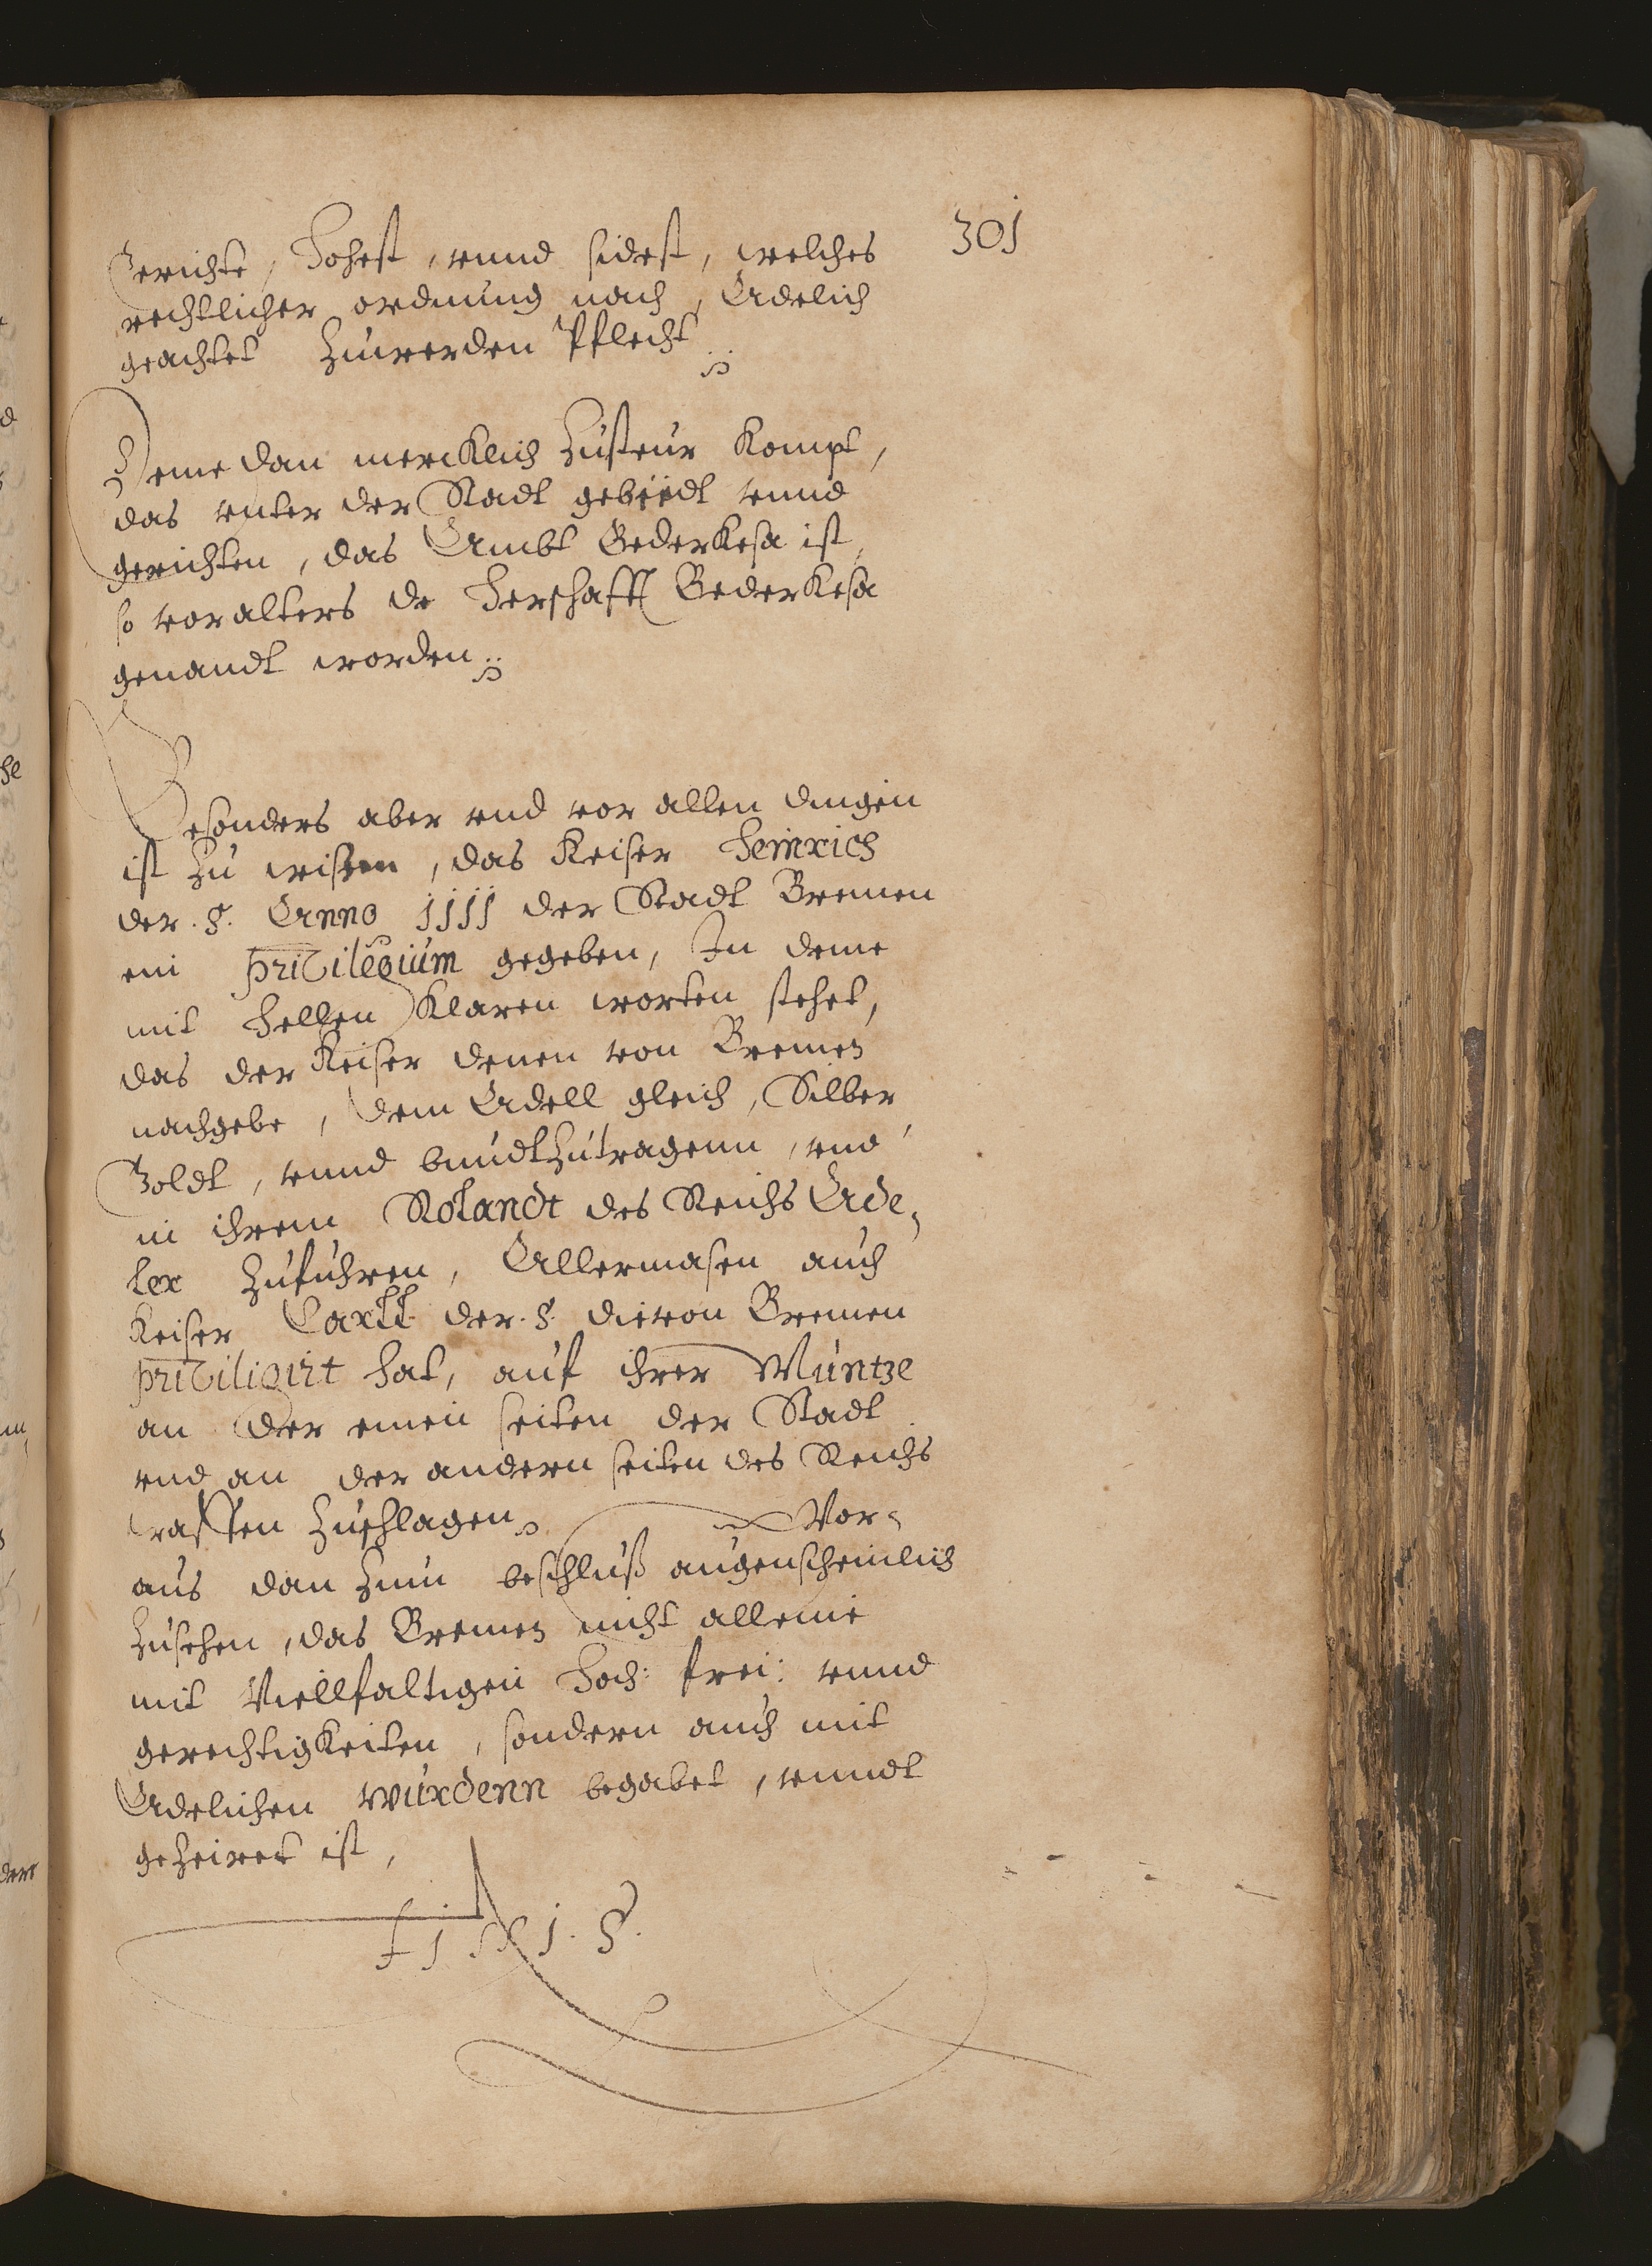 301
Gerichte, Hohest, vnnd sidest, welches
rechtlicher ordnung nach, Adelich
geachtet Zuwerden Pflecht
Deme dan mercklich Zusteur kompt,
das vnter der Stadt gebiedt vnnd
gerichten, das Ambt Bederkesa ist,
so vor alters de Herschafft Bederkesa
genandt worden
Besonders aber vnd vor allen dingen
ist Zu wissen, das Keiser Heinrich
der .5. Anno 1111 der Stadt Bremen
ein privilegium gegeben, In deme
mit hellen Klaren worten stehet,
das der Keiser denen von Bremen
nachgebe, dem Adell gleich, Silber
Goldt, vnnd bundt Zutragenn, vnd
in ihrem Rolandt des Reichs Ade,
ler Zufuhren, Allermasen auch
Keiser Carll der .5. die von Bremen
priviligirt hat, auf ihrer Müntze
an der einen seiten der Stadt
vnd an der andern seiten des Reichs
waffen Zuschlagen. Wor,
aus dan Zum beschluß augenscheinlich
Zusehen, das Bremen nicht alleine
mit Viellfaltigen Hoch: frei: vnnd
gerechtigkeiten, sondern auch mit
Adelichen würdenn begabet, vnndt
geZeiret ist,